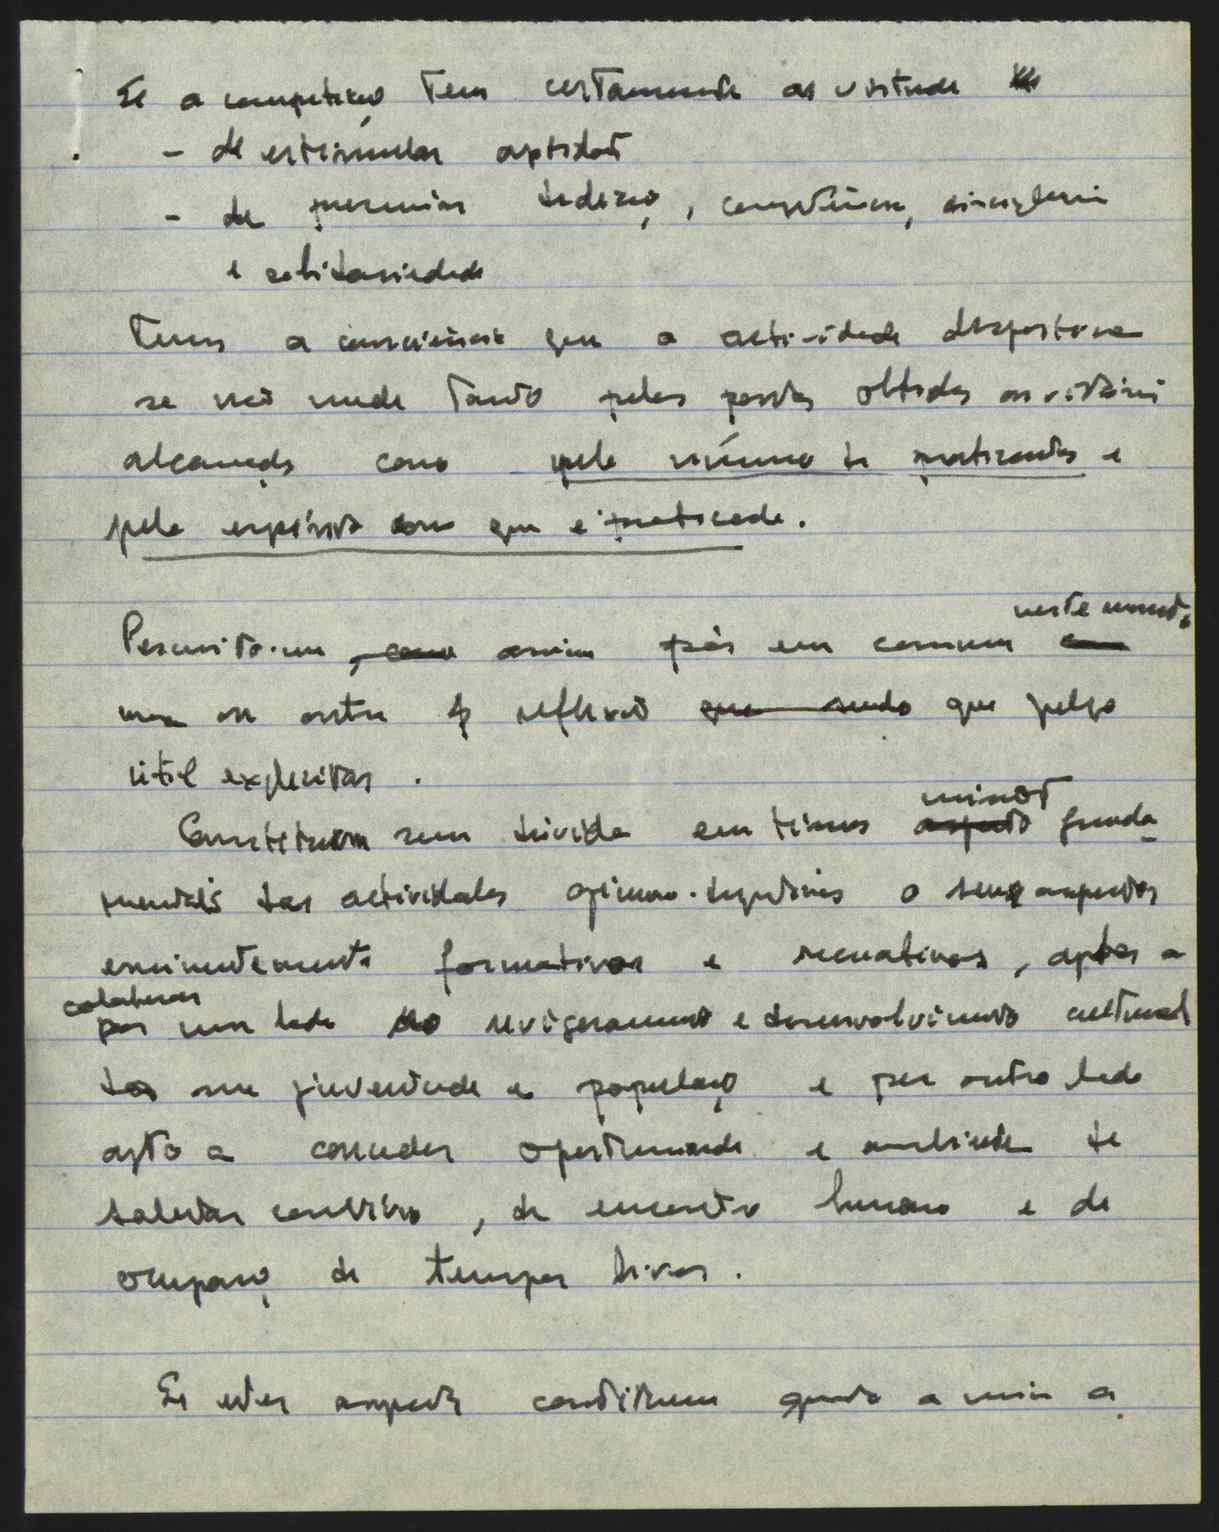 Se a competição tem certamente as virtude
- de estimular aptidões
- de premiar dedicação, competência, disciplina
e solidariedade
Temos a consciência que a actividade desportiva
se não mede tanto pelos pontos obtidos ou vitórias
alcançadas como pelo número de praticantes e
pelo espírito com que é praticada.
Permito-me, como assim pôr em comum neste mundo
uma ou outra reflexão que sendo que julgo
útil explicitar.
Constituem sem dúvida em temos aspecto minor funda
mentais das actividades gimno-desportivas o seus aspectos
eminentemente formativos e recreativos, aptos a
colaborar
por um lado no revigoramento e desenvolvimento cultural
das sua juventude e população e por outro lado
apto a conceder oportunidade e ambiente de
salutar convívio, de encontro humano e de
ocupação de tempos livres.
Se estes aspectos constituem quanto a mim a